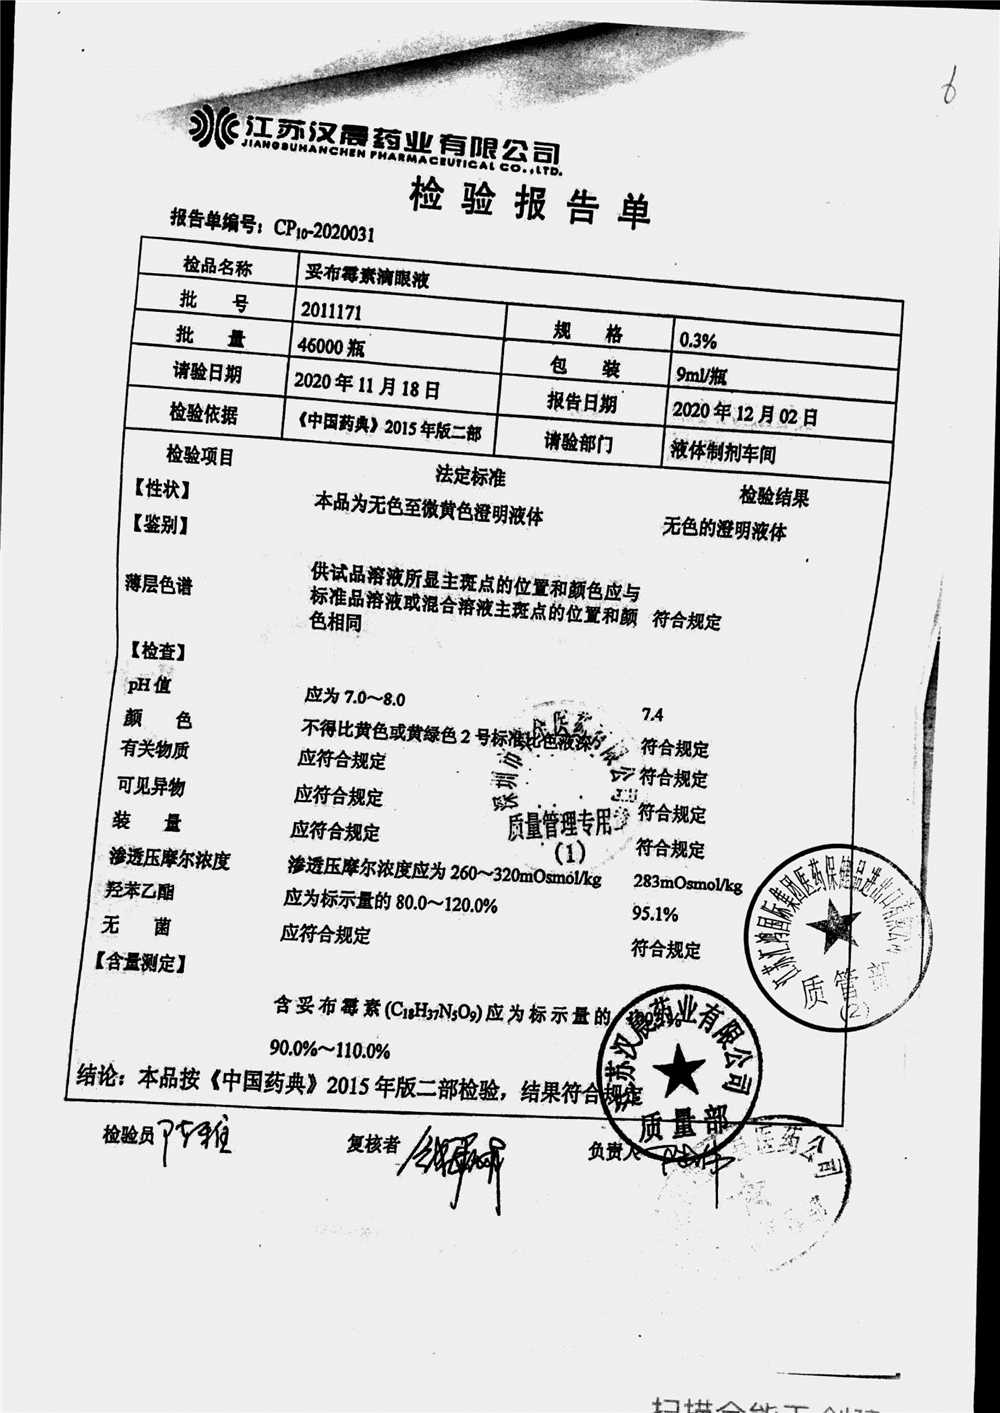 6
江苏汉晨药业有限公司
JIANGSUHANCHEN PHARMACEUTICAL CO.,LTD.
检验报告单
报告单编号：CP10-2020031
检品名称 妥布霉素滴眼液
批 号 2011171 规 格 0.3%
批 量 46000瓶 包 装 9ml/瓶
请验日期 2020年11月18日 报告日期 2020年12月02日
检验依据 《中国药典》2015年版二部 请验部门 液体制剂车间
检验项目 法定标准 检验结果
【性状】 本品为无色至微黄色澄明液体 无色的澄明液体
【鉴别】
薄层色谱 供试品溶液所显主斑点的位置和颜色应与
标准品溶液或混合溶液主斑点的位置和颜 符合规定
色相同
【检查】
pH值 应为7.0～8.0 7.4
颜 色 不得比黄色或黄绿色2号标准比色液深 符合规定
有关物质 应符合规定 符合规定
可见异物 应符合规定 符合规定
装 量 应符合规定 符合规定
渗透压摩尔浓度 渗透压摩尔浓度应为260～320mOsmol/kg 283mOsmol/kg
羟苯乙酯 应为标示量的80.0～120.0% 95.1%
无 菌 应符合规定 符合规定
【含量测定】
含妥布霉素(C18H37N5O9)应为标示量的
90.0%～110.0%
结论：本品按《中国药典》2015年版二部检验，结果符合规定
检验员 复核者 负责人
质量管理专用章
(1)
质管部
(2)
江苏汉晨药业有限公司
质量部
医药公司